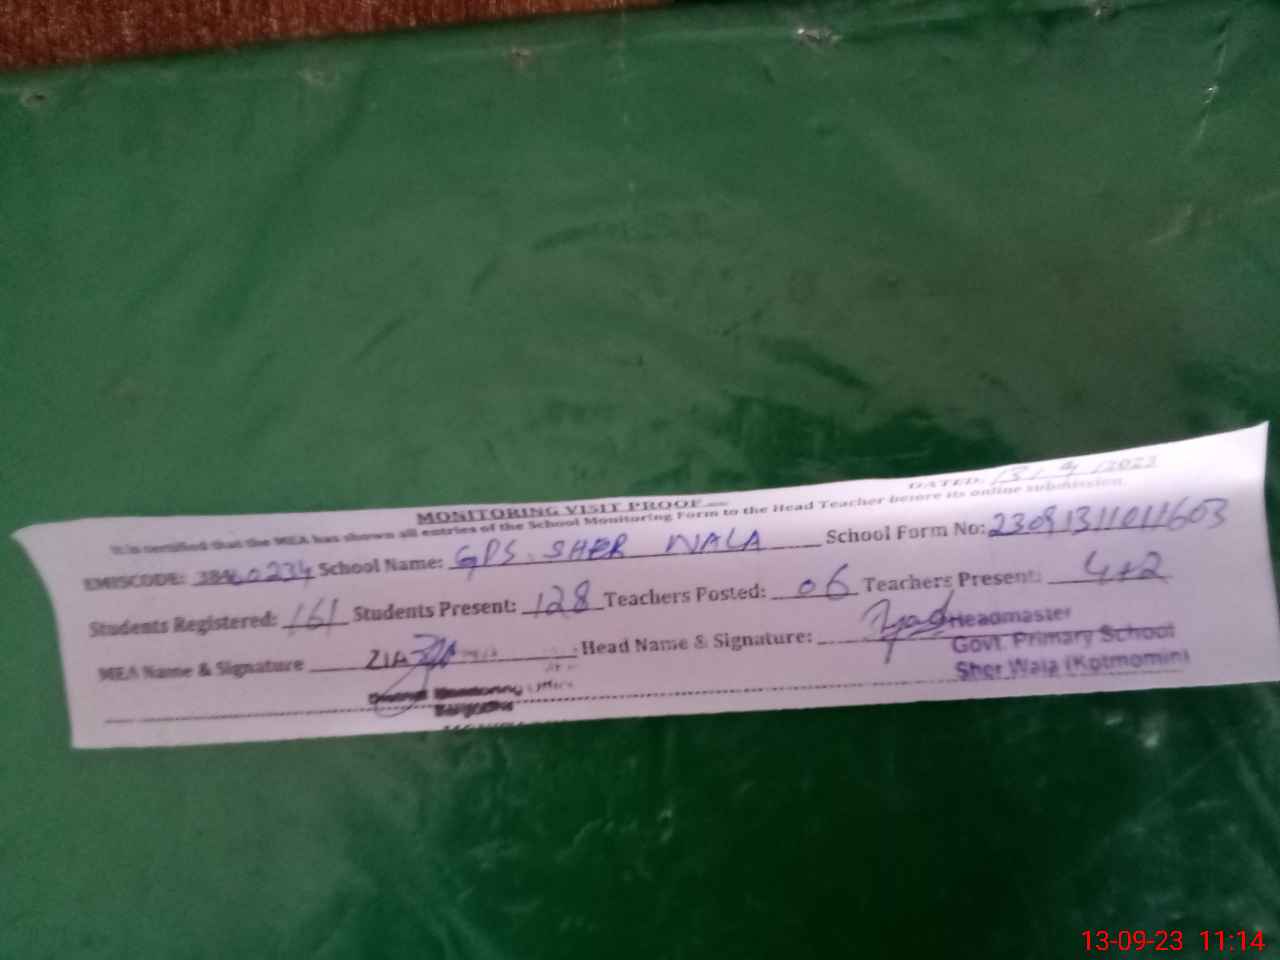 DATED: 13/9/2023
MONITORING VISIT PROOF
It is certified that the MEA has shown all entries of the School Monitoring Form to the Head Teacher before its online submission.
EMISCODE: 38460234 School Name: GPS. SHER WALA School Form No: 23091311011603
Students Registered: 161 Students Present: 128 Teachers Posted: 06 Teachers Present: 4+2
MEA Name & Signature ZIA Head Name & Signature:
Headmaster
Govt. Primary School
Sher Wala (Kotmomin)
District Monitoring Office
Sargodha
13-09-23 11:14